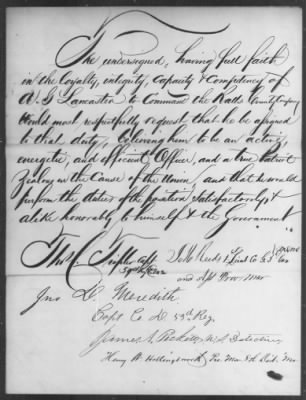 The undersigned, having full faith
in the Loyalty, integrity, Capacity & Competency of
A. G. Lancaster to Command the Ralls County Company
Would most respectfully request that he be assigned
to that duty, believing him to be an active,
energetic, and efficient Officer, and a true Patriot
Zealous in the Cause of the Union, and that he would
perform the duties of the position Satisfactorily &
alike honorably to himself & the Government
Capt
Lieut Co
and Mar
Jno D. Meredith
Capt Co D. 53d Reg.
James S. U.S Detective
Henry W. Hollingsworth Pro Mar 8th Dist. Mo